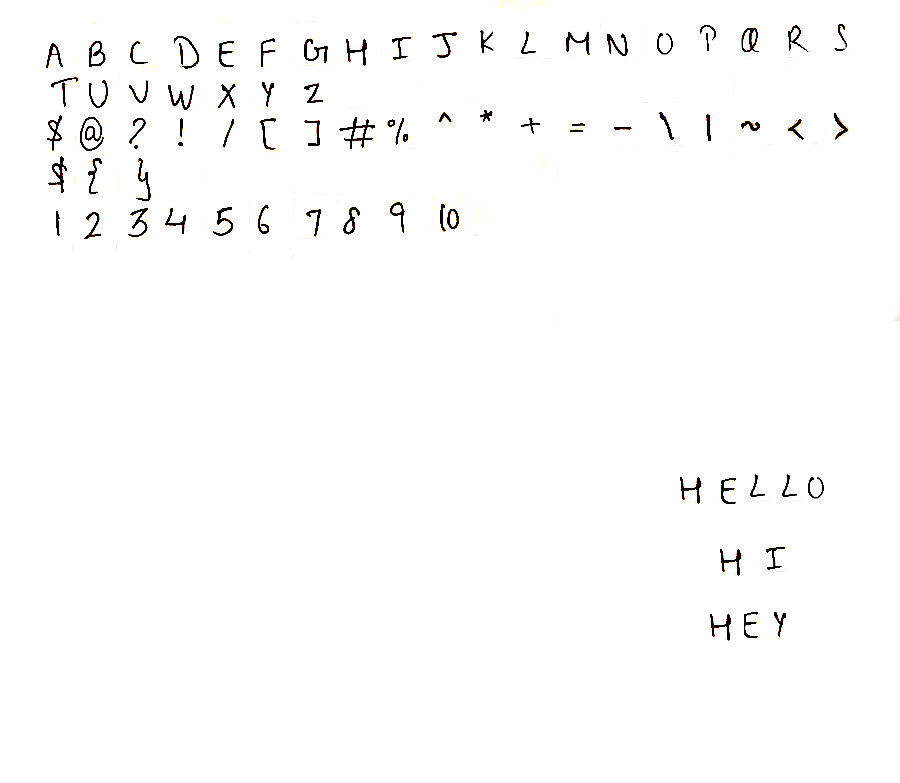 A B C D E F G H I J K L M N O P Q R S
T U V W X Y Z
$ @ ? ! / [ ] # % ^ * + = - \ | ~ < >
$ { }
1 2 3 4 5 6 7 8 9 10
HELLO
HI
HEY